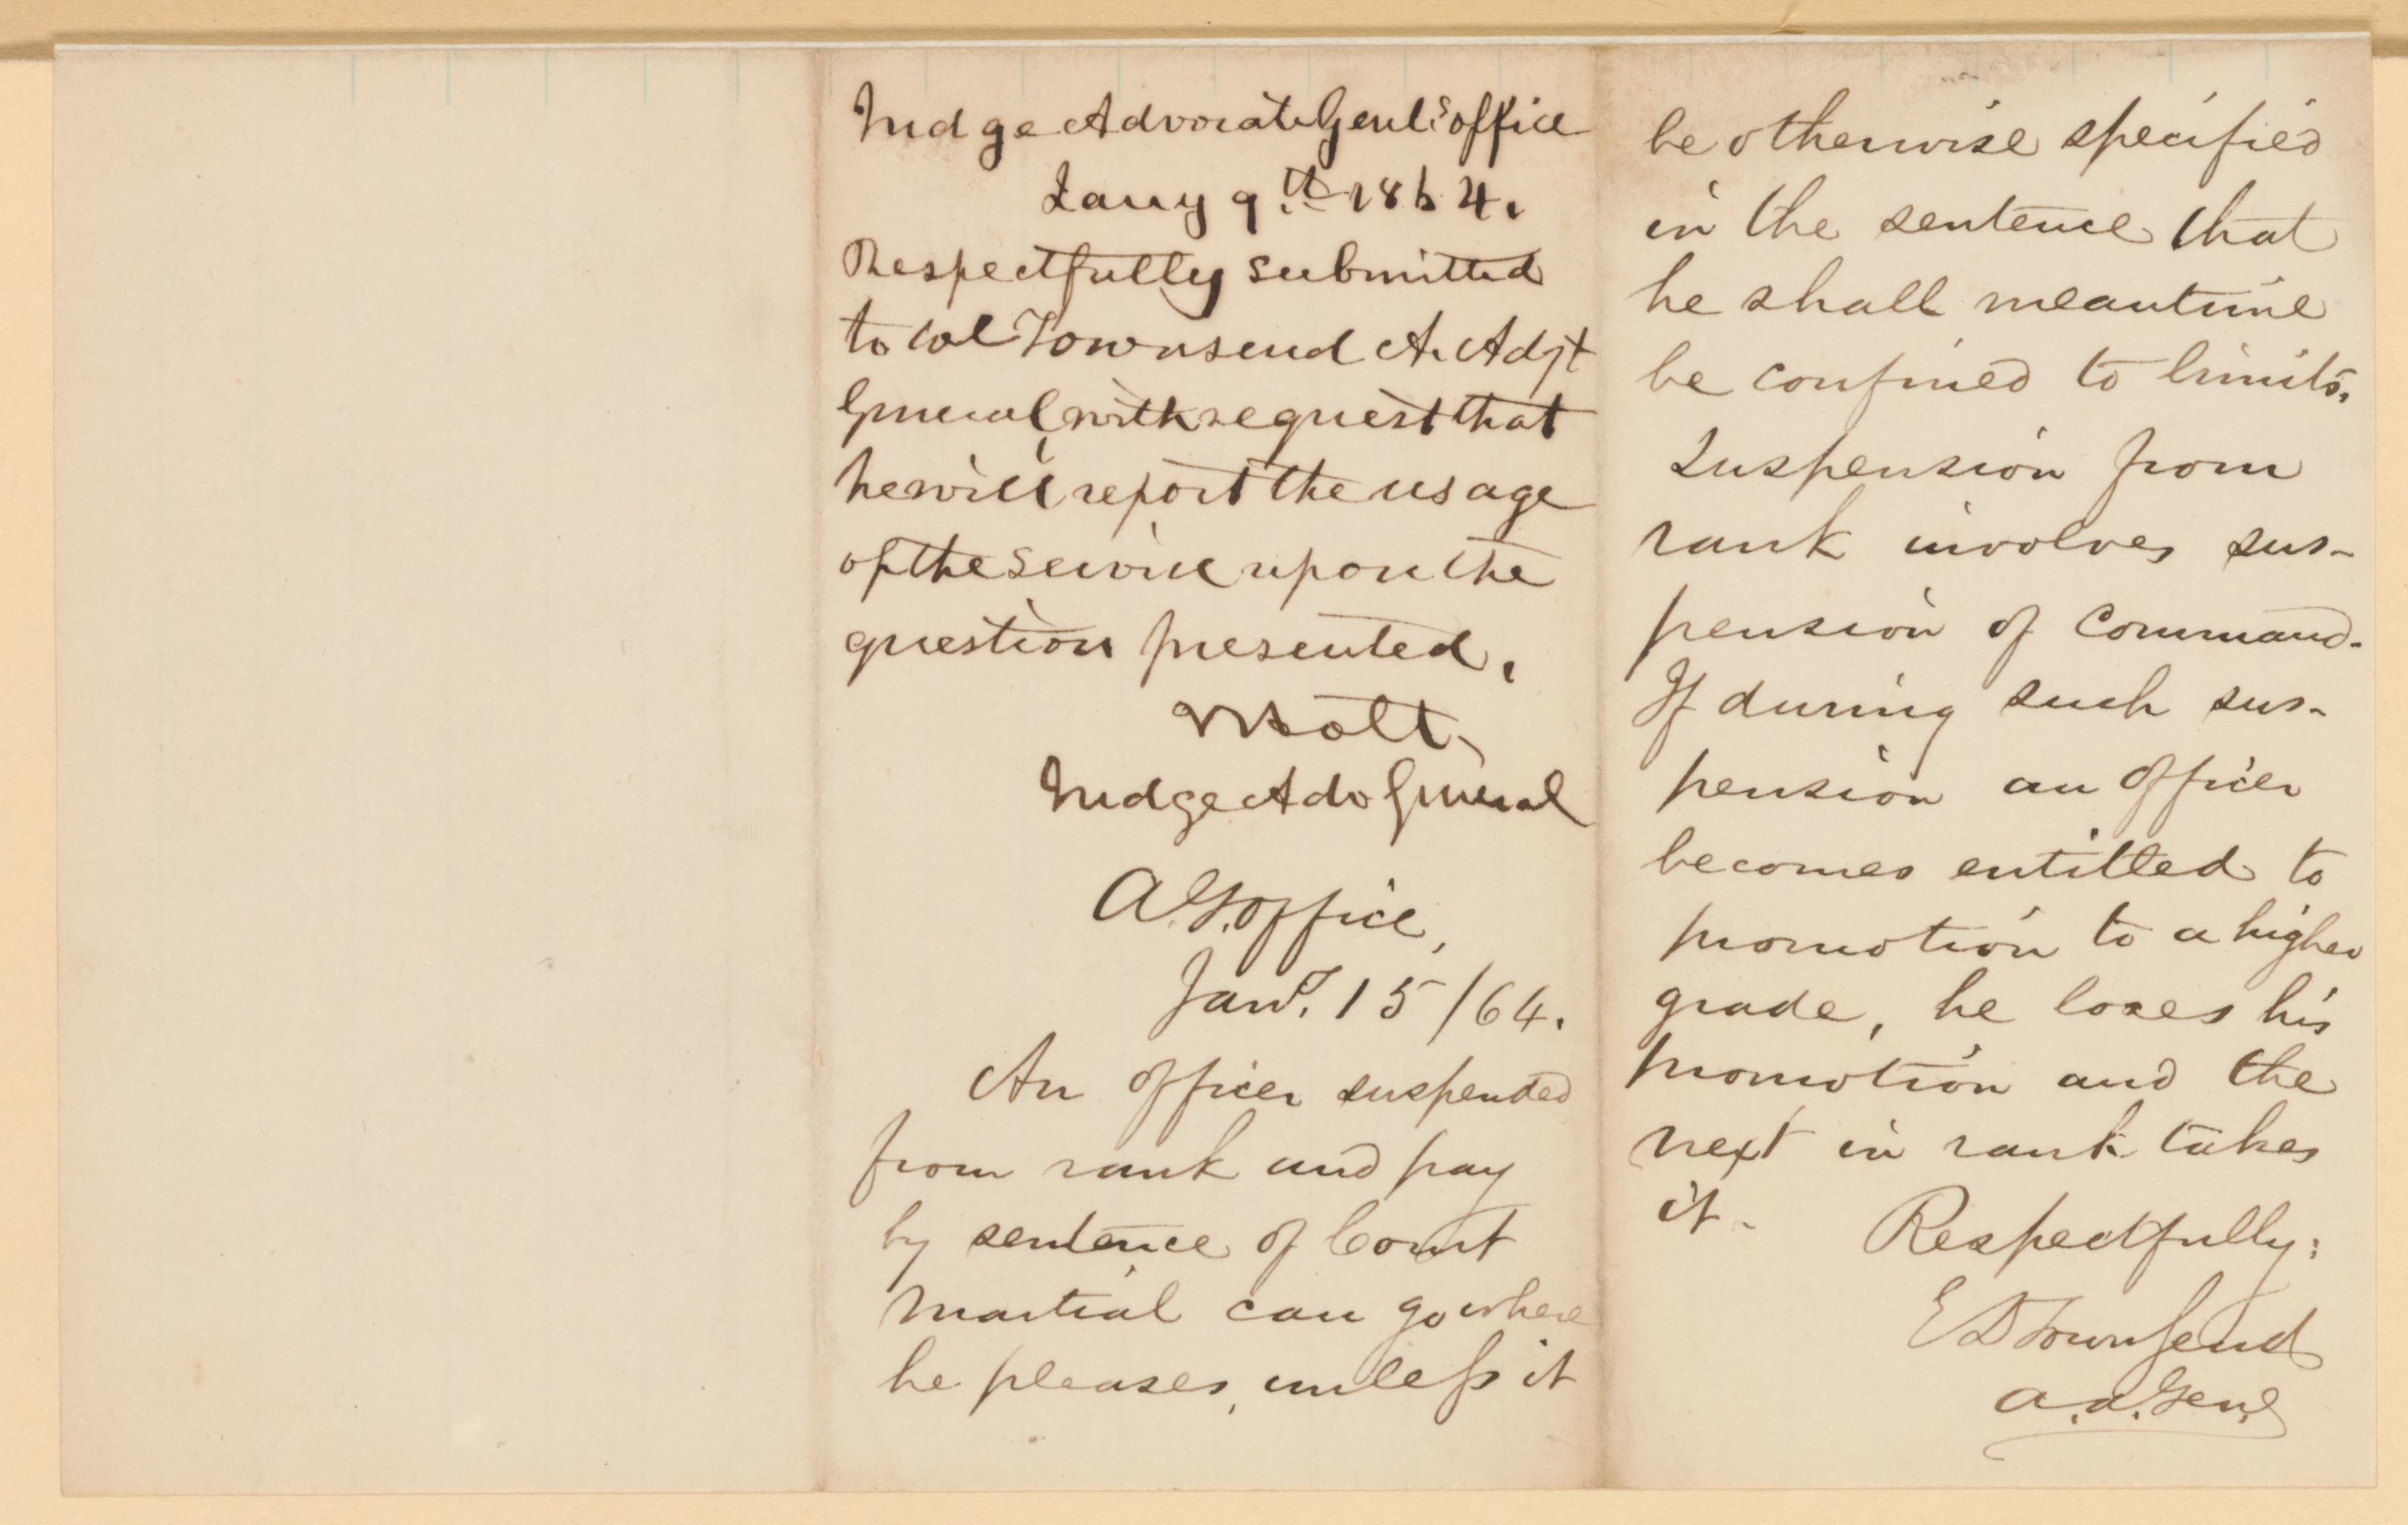 Judge Advocate Genl's office
Jany 9th 1864.
Respectfully submitted
to Col Townsend A. Adjt
General, with request that
he will report the usage
of the service upon the
question presented.
J Holt.
Judge Adv General
A.G. Office,
Jany. 15/64.
An officer suspended
from rank and pay
by sentence of Court
Martial can go where
he pleases, unless it
be otherwise specified
in the sentence that
he shall meantime
be confined to limits.
Suspension from
rank involves sus-
pension of Command.
If during such sus-
pension an officer
becomes entitled to
promotion to a higher
grade, he loses his
promotion and the
next in rank takes
it.
Respectfully:
E D Townsend
A.A. Genl